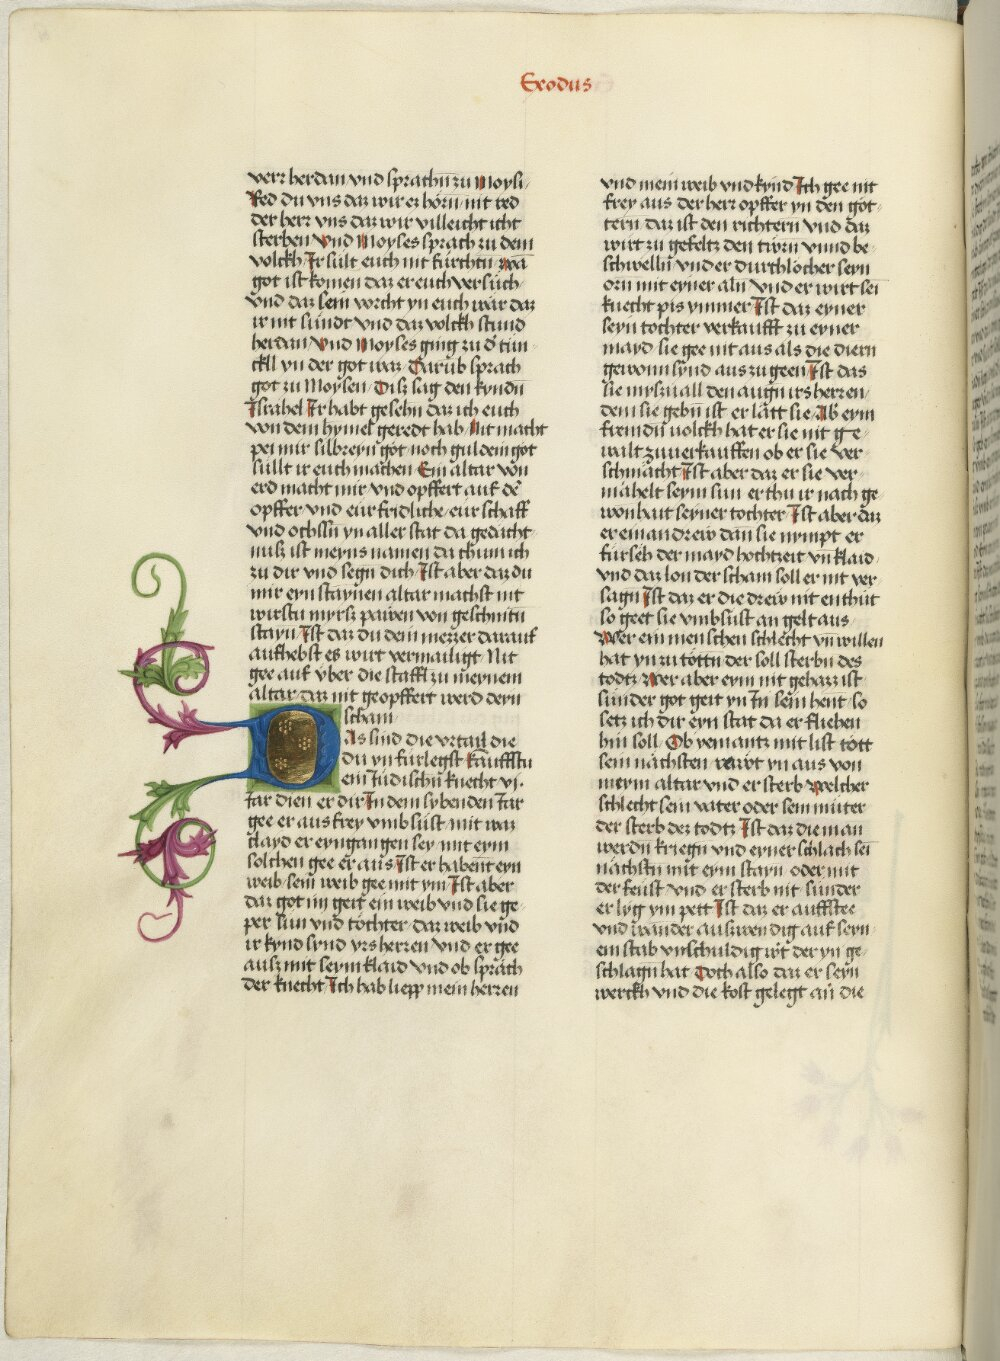 Exodus
verr herdan vnd sprachn̄ zu Moysi
Red du vns daz wir er hörn nit red
der herr vns daz wir villeicht icht
sterben Vnd Moyses sprach zu dem
volckh Ir sült euch nit fürchtn̄ wā
got ist komen daz er euch versůch
vnd daz sein vorcht yn euch wär daz
ir nit sündt vnd daz volckh stund
herdan Vnd Moyses ging zu d' tün
ckll yn der got waz Darüb sprach
got zu Moysen Disz sag den kyndn̄
Israhel Ir habt gesehn̄ daz ich euch
von dem hymel geredt hab Nit macht
pei mir silbreyn̄ göt noch guldein göt
süllt ir euch machen Ein altar von
erd macht mir vnd opffert auf dē
opffer vnd eur fridliche eur schaff
vnd ochssn̄ yn aller stat da gedächt
nusz ist meyns namen da chum ich
zu dir vnd segn dich Ist aber daz du
mir eyn staynen altar machst nit
wirstu myrsz pawen von geschnitn̄
stayn̄ Ist daz du dein mezzer darauf
aufhebst es wirt vermailigt Nit
gee auf vber die staffl zu meynem
altar daz nit geopffert werd deyn
scham
Das sind die vrtail die
du yn fürlegst Kauffstu
ein Jüdischn̄ knecht vi.
Jar dien er dir In dem sybenden Jar
gee er aus frey vmb süst mit waz
clayd er eyngangen sey mit eym
solchen gee er aus Ist er habent eyn
weib sein weib gee mit ym Ist aber
daz got im geit ein weib vnd sie ge
per sün vnd töchter daz weib vnd
ir kynd synd yrs herren vnd er gee
ausz mit seym klaid vnd ob spräch
der knecht Ich hab liepp mein herren
vnd mein weib vnd kynd Ich gee nit
frey aus der herr opffer yn den göt
tern daz ist den richtern vnd daz
wirt zu gefeltz den türn vnnd be
schwelln̄ vnd er durchlöcher seyn
örn mit eyner aln vnd er wirt sei
knecht pis ymmer Ist daz eyner
seyn tochter verkaufft zu eyner
mayd sie gee nit aus als die diern
gewonn synd aus zu geen Ist das
sie myszuall den augn̄ irs herren
dem sie gebn̄ ist er lätt sie Ab eym
fremdn̄ volckh hat er sie nit ge
walt zuuerkauffen ob er sie ver
schmächt Ist aber daz er sie ver
mähelt seym sun er thu ir nach ge
wonhait seyner tochter Ist aber daz
er ein andrew dan̄ sie nympt er
fürseh der mayd hochtzeit vn̄ klaid
vnd daz lon der scham soll er nit ver
sagn̄ Ist daz er die drew nit enthut
so geet sie vmbsüst an gelt aus
Wer ein menschen schlecht vn̄ willen
hat yn zu töttn̄ der soll sterbn̄ des
todtz Wer aber eym nit gehazz ist
sünder got geit yn In sein hent so
setz ich dir eyn stat da er fliehen
hin soll Ob yemantz mit list tött
sein nächsten reiszt yn aus von
meym altar vnd er sterb Welcher
schlecht sein vater oder sein müter
der sterb dez todtz Ist daz die man
werdn̄ kriegn̄ vnd eyner schlach sei
nächstn̄ mit eym stayn oder mit
der feüst vnd er sterb nit sünder
er lyg ym pett Ist daz er auffstee
vnd wander auszwendig auf seyn
ein stab vnschuldig wirt der yn ge
schlagn̄ hat Doch also daz er seyn
werckh vnd die kost gelegt an̄ die